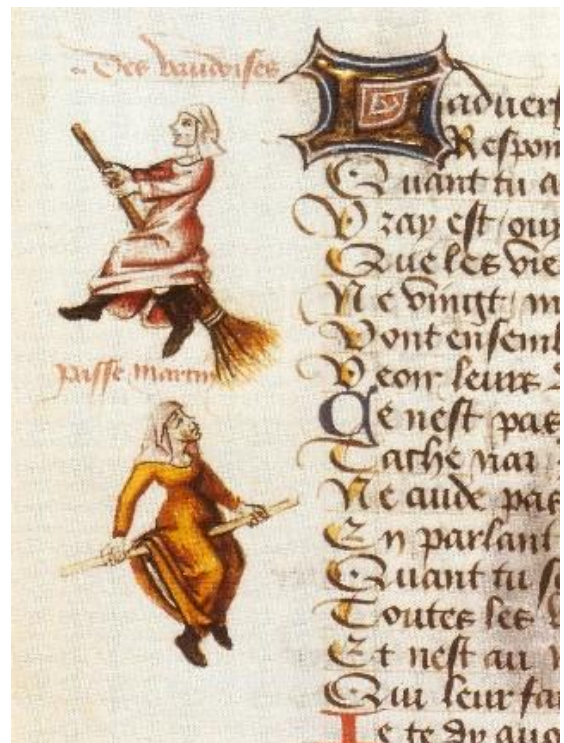 Des vaudoises
aduers
Respon
Quant tu a
Vray est ouy
Que les vie
Ne vingt m
Vont ensembl
Veoir leurs
passe martin
Ce nest pas
Tache nar
Ne cuide pas
En parlant
Quant tu sc
Toutes les
Et nest au
Qui leur fai
Ie te dy quo